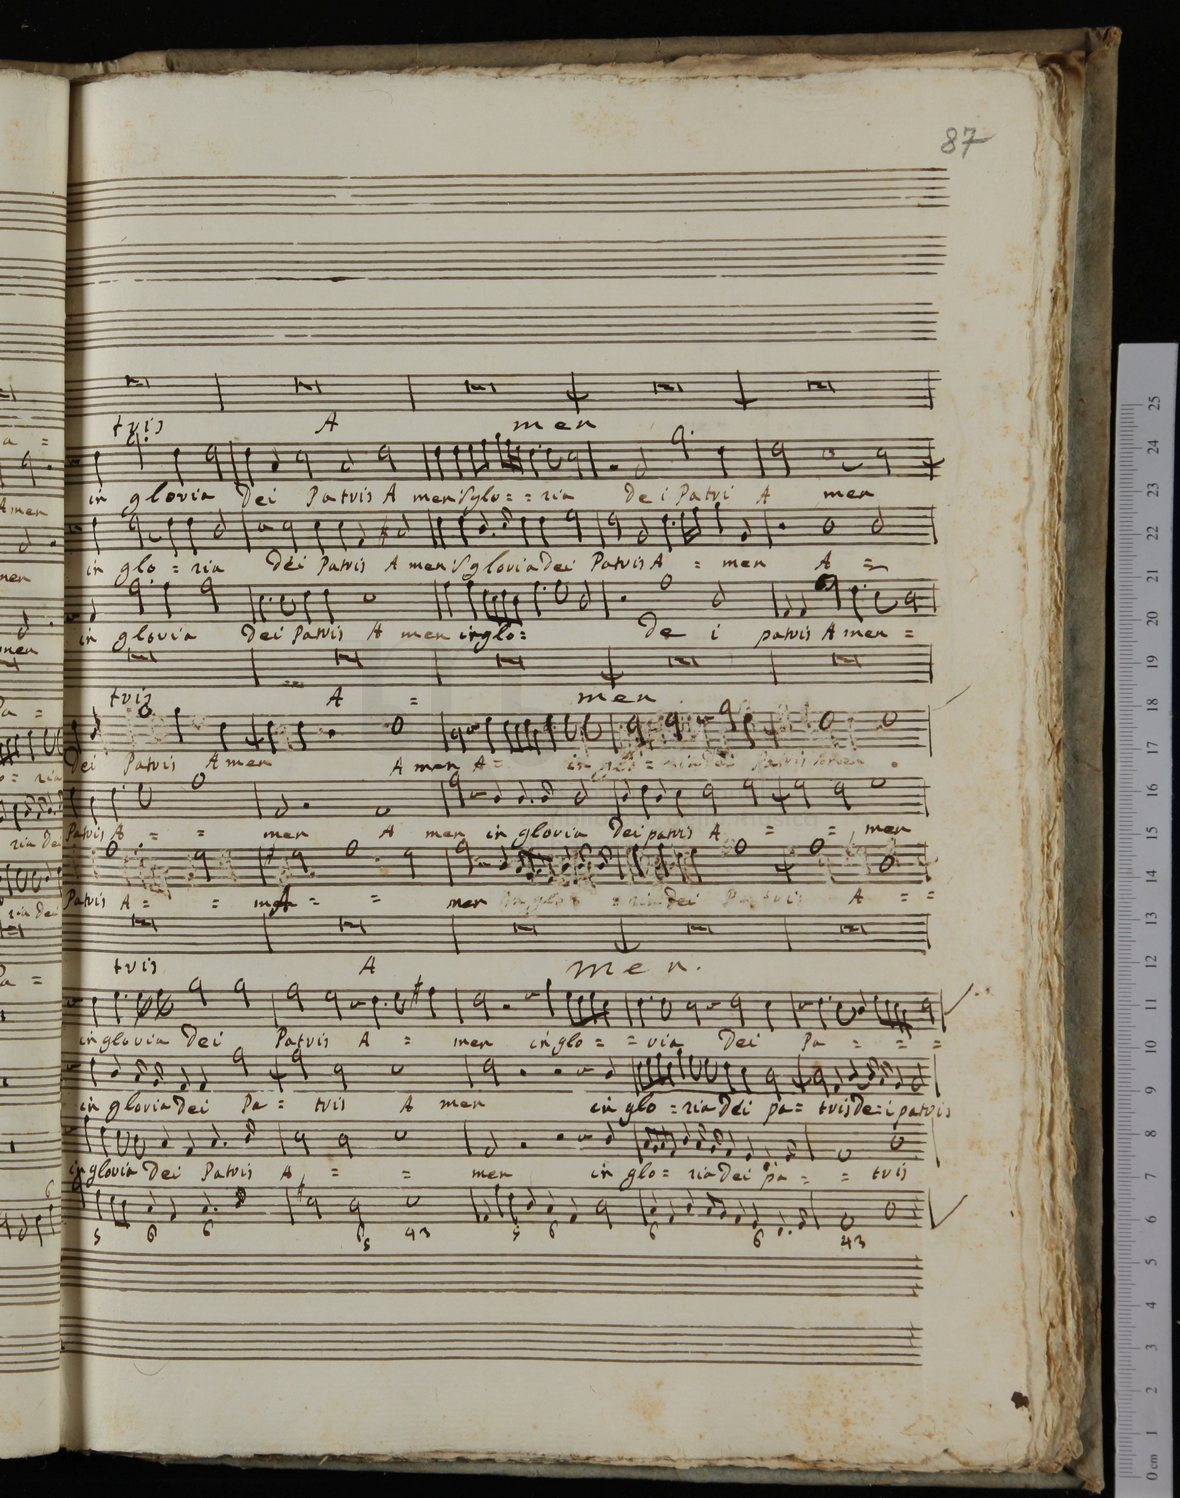 87
tris A men
in gloria Dei Patris A men in glo = = ria De i Patri A men
in glo = ria Dei Patris A men in gloria Dei Patris A = men A =
in gloria Dei Patris A men in glo = De i patris A men =
tris A = men
Dei Patris A men A men A = in glo = ria Dei Patris Amen
Patris A = = men A men in gloria Dei patris A = = men
Patris A = = men = = men in glo = = ria Dei Patris A = =
tris A men.
in gloria Dei Patris A = men in glo = = ria Dei Pa = = =
in gloria Dei Pa = tris A men in glo = ria Dei pa = tris De = i patris
in gloria Dei Patris A = = men in glo = ria Dei pa = = tris
5 6 6 6 5 43 5 6 6 6 43
25
24
23
22
21
20
19
18
17
16
15
14
13
12
11
10
9
8
7
6
5
4
3
2
1
0 cm